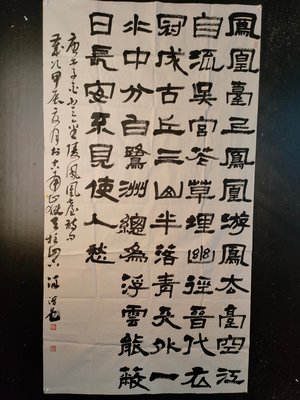 鳳凰臺上鳳凰游鳳去臺空江
自流吳宮花草埋幽徑晉代衣
冠成古丘三山半落青天外一
水中分白鷺洲總為浮雲能蔽
日長安不見使人愁
金陵鳳凰臺詩
歲次甲辰夏月於